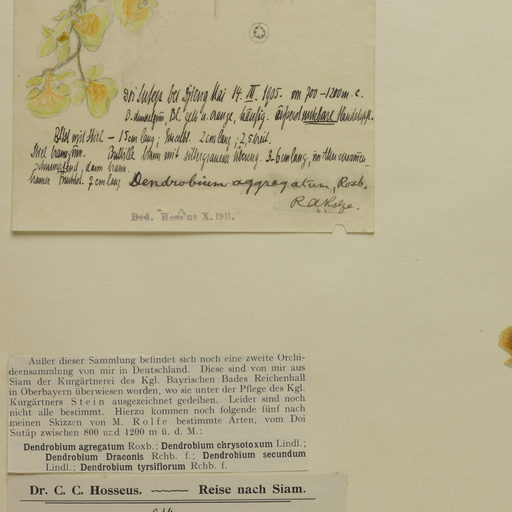 Doi Sutep bei Djieng Mai 14. III. 1905. um 700–1200 m. e.
D. dunkelgrün, Bl. gelb u. orange, häufig.
Blatt mit Stiel – 15 cm lang; 2 cm lang, 2,5 breit.
mit silbergrauem 3–6 cm lang, im
dann braun.
7 cm lang Dendrobium aggregatum, Roxb.
R A Rolfe.
Ded. Hosseus X. 1911.
Außer dieser Sammlung befindet sich noch eine zweite Orchi-
deensammlung von mir in Deutschland. Diese sind von mir aus
Siam der Kurgärtnerei des Kgl. Bayrischen Bades Reichenhall
in Oberbayern überwiesen worden, wo sie unter der Pflege des Kgl.
Kurgärtners Stein ausgezeichnet gedeihen. Leider sind noch
nicht alle bestimmt. Hierzu kommen noch folgende fünf nach
meinen Skizzen von M. Rolfe bestimmte Arten, vom Doi
Sutäp zwischen 800 und 1200 m ü. d. M.:
Dendrobium agregatum Roxb.; Dendrobium chrysotoxum Lindl.;
Dendrobium Draconis Rchb. f.; Dendrobium secundum
Lindl.; Dendrobium tyrsiflorum Rchb. f.
Dr. C. C. Hosseus. —— Reise nach Siam.